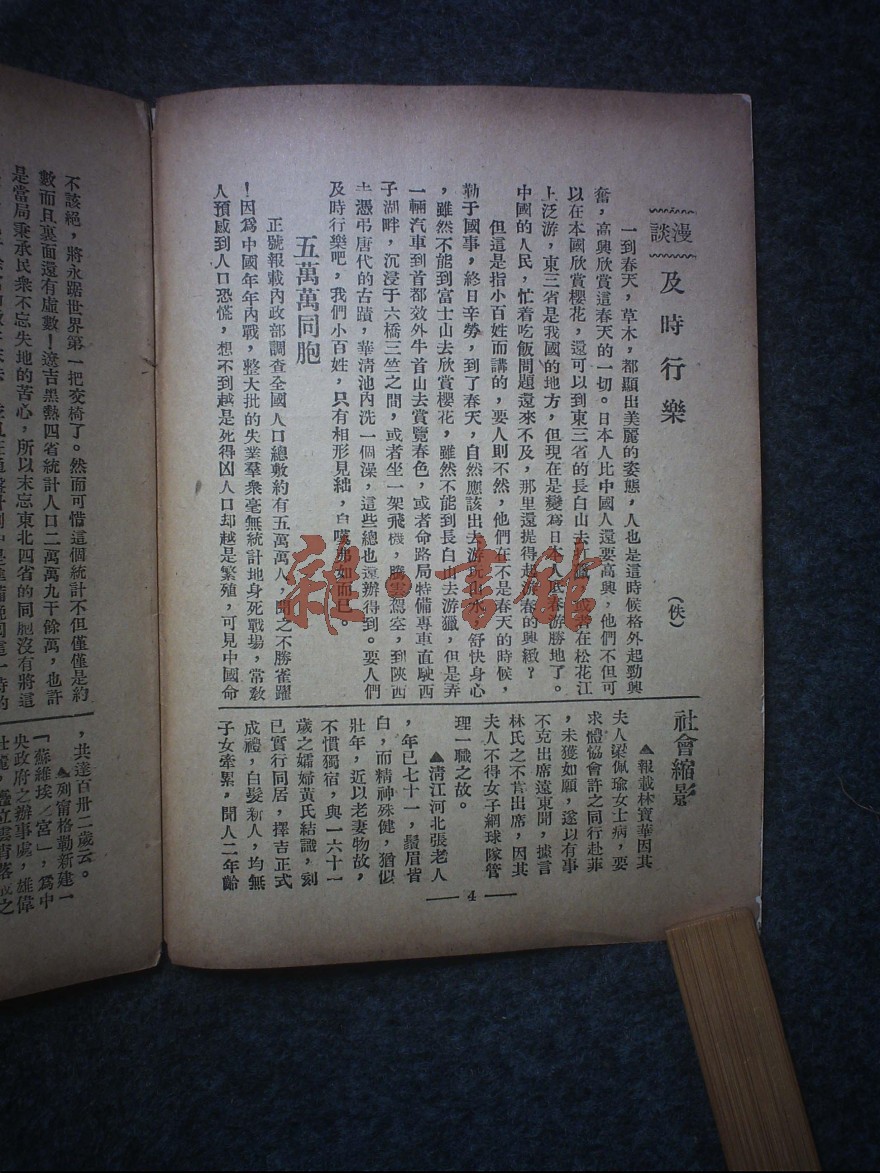 漫談
及時行樂
（佚）
一到春天，草木，都顯出美麗的姿態，人也是這時候格外起勁興
奮，高興欣賞這春天的一切。日本人比中國人還要高興，他們不但可
以在本國欣賞櫻花，還可以到東三省的長白山去獵，或者在松花江
上泛游，東三省是我國的地方，但現在是變爲日本人底春游勝地了。
中國的人民，忙着吃飯問題還來不及，那里還提得起游春的興緻？
但這是指小百姓而講的，要人則不然，他們在不是春天的時候，
勤于國事，終日辛勞，到了春天，自然應該出去游玩山水，舒快身心
，雖然不能到富士山去欣賞櫻花，雖然不能到長白山去游獵，但是弄
一輛汽車到首都效外牛首山去賞覽春色，或者命路局特備專車直駛西
子湖畔，沉浸于六橋三竺之間，或者坐一架飛機，騰雲駕空，到陝西
去憑弔唐代的古蹟，華清池內洗一個澡，這些總也還辦得到。要人們
及時行樂吧，我們小百姓，只有相形見絀，自嘆弗如而已。
五萬萬同胞
正號報載內政部調查全國人口總數約有五萬萬人，聞之不勝雀躍
！因爲中國年年內戰，整大批的失業羣衆毫無統計地身死戰場，常敎
人預感到人口恐慌，想不到越是死得凶人口却越是繁殖，可見中國命
社會縮影
▲報載林寶華因其
夫人梁佩瑜女士病，要
求體協會許之同行赴菲
，未獲如願，遂以有事
不克出席遠東聞，據言
林氏之不肯出席，因其
夫人不得女子網球隊管
理一職之故。
▲清江河北張老人
，年已七十一，鬚眉皆
白，而精神殊健，猶似
壯年，近以老妻物故，
不慣獨宿，與一六十一
歲之孀婦黃氏結識，刻
已實行同居，擇吉正式
成禮，白髮新人，均無
子女牽累，聞人二年齡
— 4 —
不該絕，將永踞世界第一把交椅了。然而可惜這個統計不但僅僅是約
數而且裏面還有虛數！遼吉黑熱四省統計人口二萬萬九千餘萬，也許
是當局秉承民衆不忘失地的苦心，所以末忘東北四省的同胞沒有將這
，共達百卅二歲云。
▲列甯格勒新建一
「蘇維埃ノ宮」，爲中
央政府之辦事處，雄偉
雜·書館